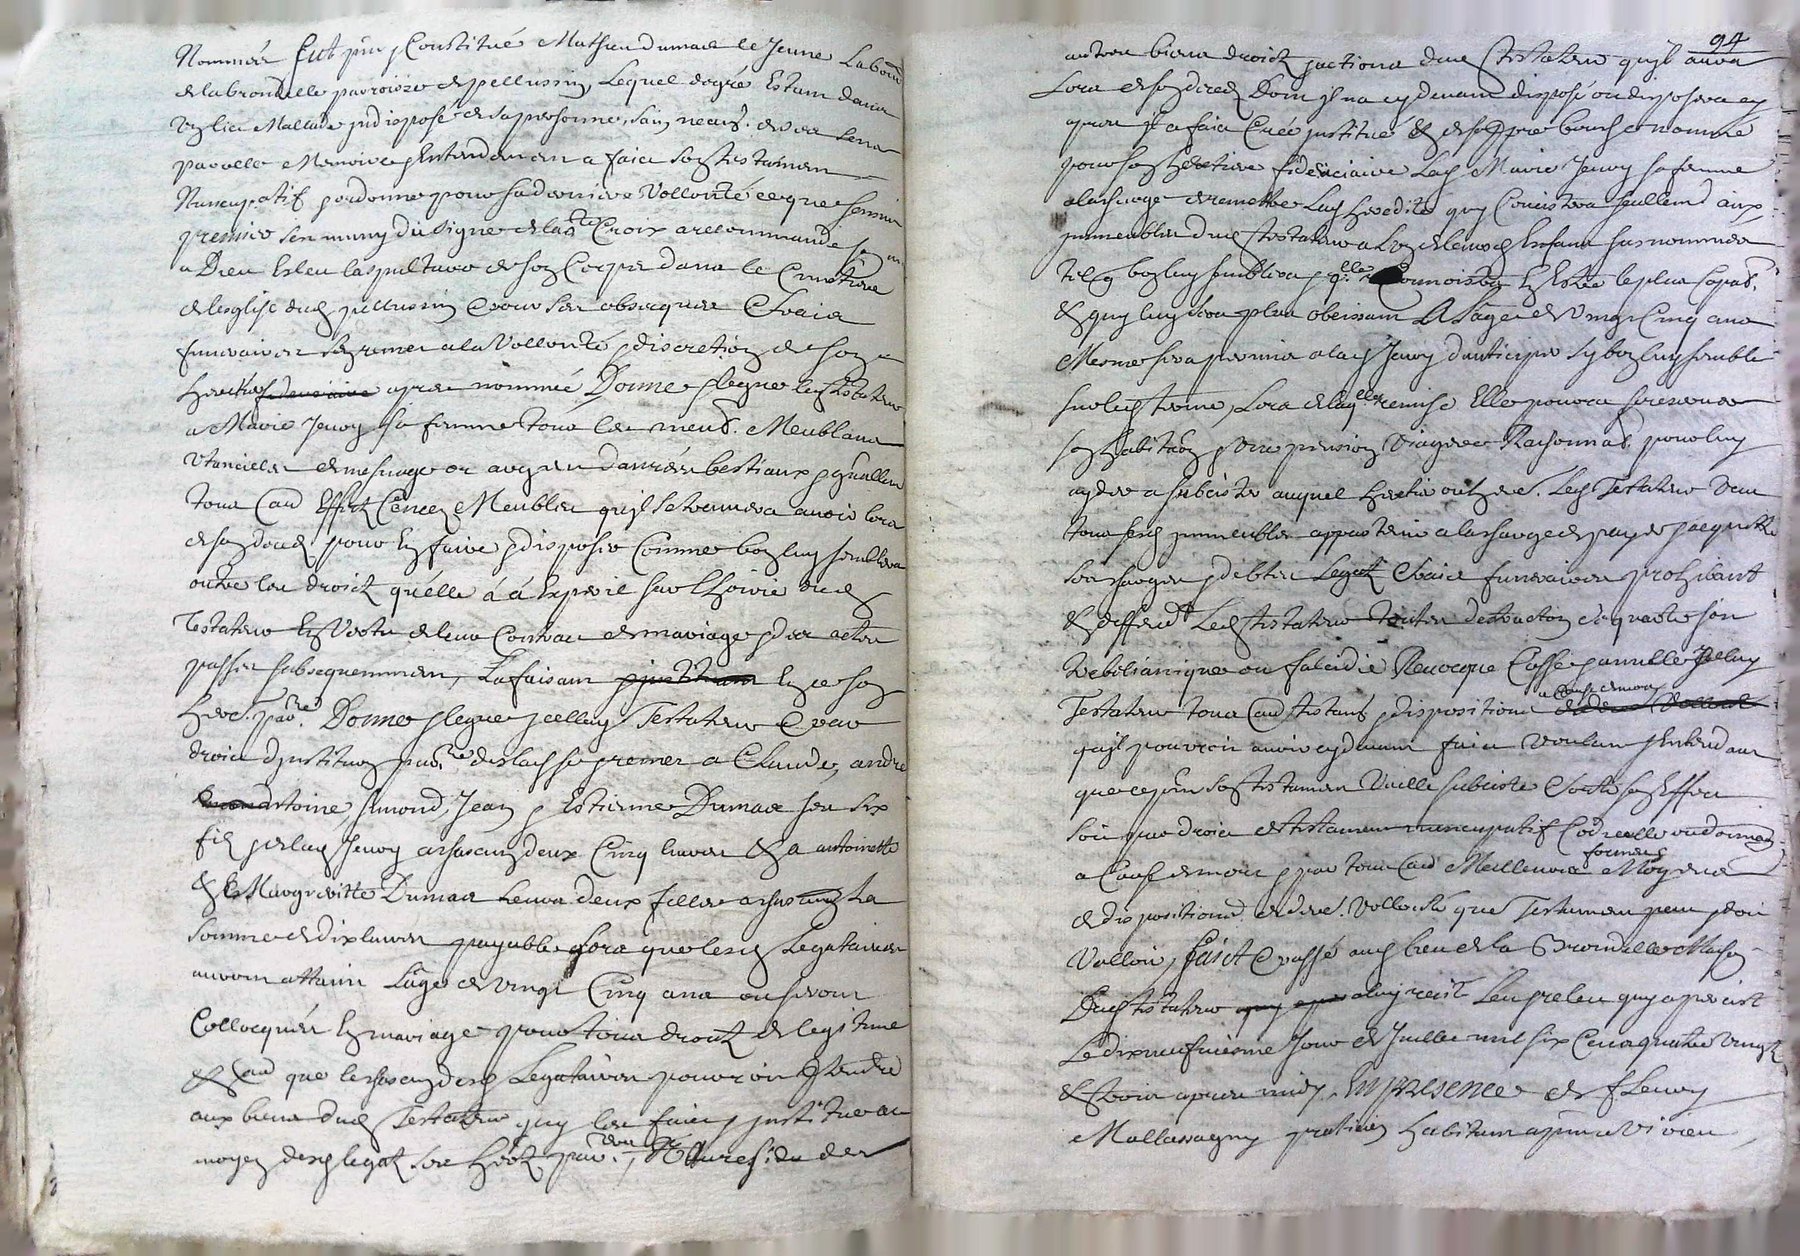 Nommés fut pnt & Constitué Mathieu dumas le Jeune Labour
de la brondelle parroisse de pellussin, Lequel de gré Estant dans
un lict Mallade indisposé de sa personne, sain neanm. de ses sens
parolle Memoire & Entendement a faict son testament
Nuncupatif & ordonné pour sa derniere Vollonté ce que sensuit
premier sest muny du signe de la Ste Croix a recommandé son ame
a Dieu Esleu la sepulture de son Corps dans le Cimetiere
de leglise dud pellussin & pour ses obseques & fraix
funeraires sen remet a la Vollonté & discretion de son
heritiere apres nommée Donne & legue led testateur
a Marie Jeury sa femme tous les meub. Meublans
Utancilles de mesnage or argent danrées bestiaux & gnallem
tous Cau Effectz Cencez Meubles qu'il se trouvera avoir lors
de son deced pour En faire & disposer Comme bon luy semblera
outre les droictz quelle a a Exprendre sur Lhoirie dud
Testateur En Vertu de leur Contract de mariage & des actes
passés subsequemment, La faisant En ce son
hered. par.re Donne & legue icelluy Testateur & par
droict dinstituon par.re delaisse & remet a Claude, andré
antoine, simond, Jean & Estienne Dumas ses six
filz & de lad Jeury a chascung deux Cinq livres & a antoinette
& Margueritte Dumas leurs deux filles a chascung La
somme de dix livres payable Lors que lesd Legataires
auront attaint Lâge de vingt Cinq ans ou seront
Collocqués En mariage pour tous droictz de legitime
& au que les chascung desd Legataires pourroint prtendre
aux biens dud Testateur quy les faict & institue au
moyen desd legatz ses heretz par.res, Et Au residu de ses
94
autres biens droictz & actions dud testateur qu'il aura
Lors de son deced Dont Il na cy devant disposé ou disposera cy
apres Il a faict Créé institué & de sa ppre bouche nommé
pour son heretiere fideiciaire Lad Marie Jeury sa femme
a la charge de remettre Lad heredité quy Concistera seullemt aux
immeubles dud testateur a Lun de leursd Enfans sus nommés
tel q bon luy semblera & qlle Connoistra En Estre le plus Capab.
& quy luy sera plus obeissant A Lage de Vingt Cinq ans
Mesme sera permis a lad Jeury danticiper sy bon luy semble
sur led terme, Lors de laqlle remise Elle pourra se reserver
son habitaon & Une pension Viagere Raisonnab. pour luy
ayder a subcister auquel heretier ou hered. Led Testateur Veut
tous sesd immeubles appartenir a la charge de payer & acquitter
ses charges & debtes Legatz & fraix funeraires prohibant
& deffend Led testateur toutes detraction de quarte soit
trebelianique ou falcidie Revocque Casse & annulle Icelluy
Testateur tous Cau testants & dispositions a Cause de mort
qu'il pourroit avoir cy devant faict voulant & Entendant
que ce pnt son testament Vaille subciste & sorte son Effect
soit par droict de testament nuncupatif Codicille ou donnaon
a Cause de mort & par tous Cau Meilleurs formes Moyens
de dispositiond. de dre. Vollonté que Testament peut & doit
Valloir, faict & passé aud lieu de la Brondelle Maison
Dud testateur a luy recité Leu & releu quy a perciste
Le dix neufviesme Jour de Juillet mil six Cens quatre vingtz
& trois apres midy. En presence de fleury
Mallassagny praticien habitant a pnt a Virieu